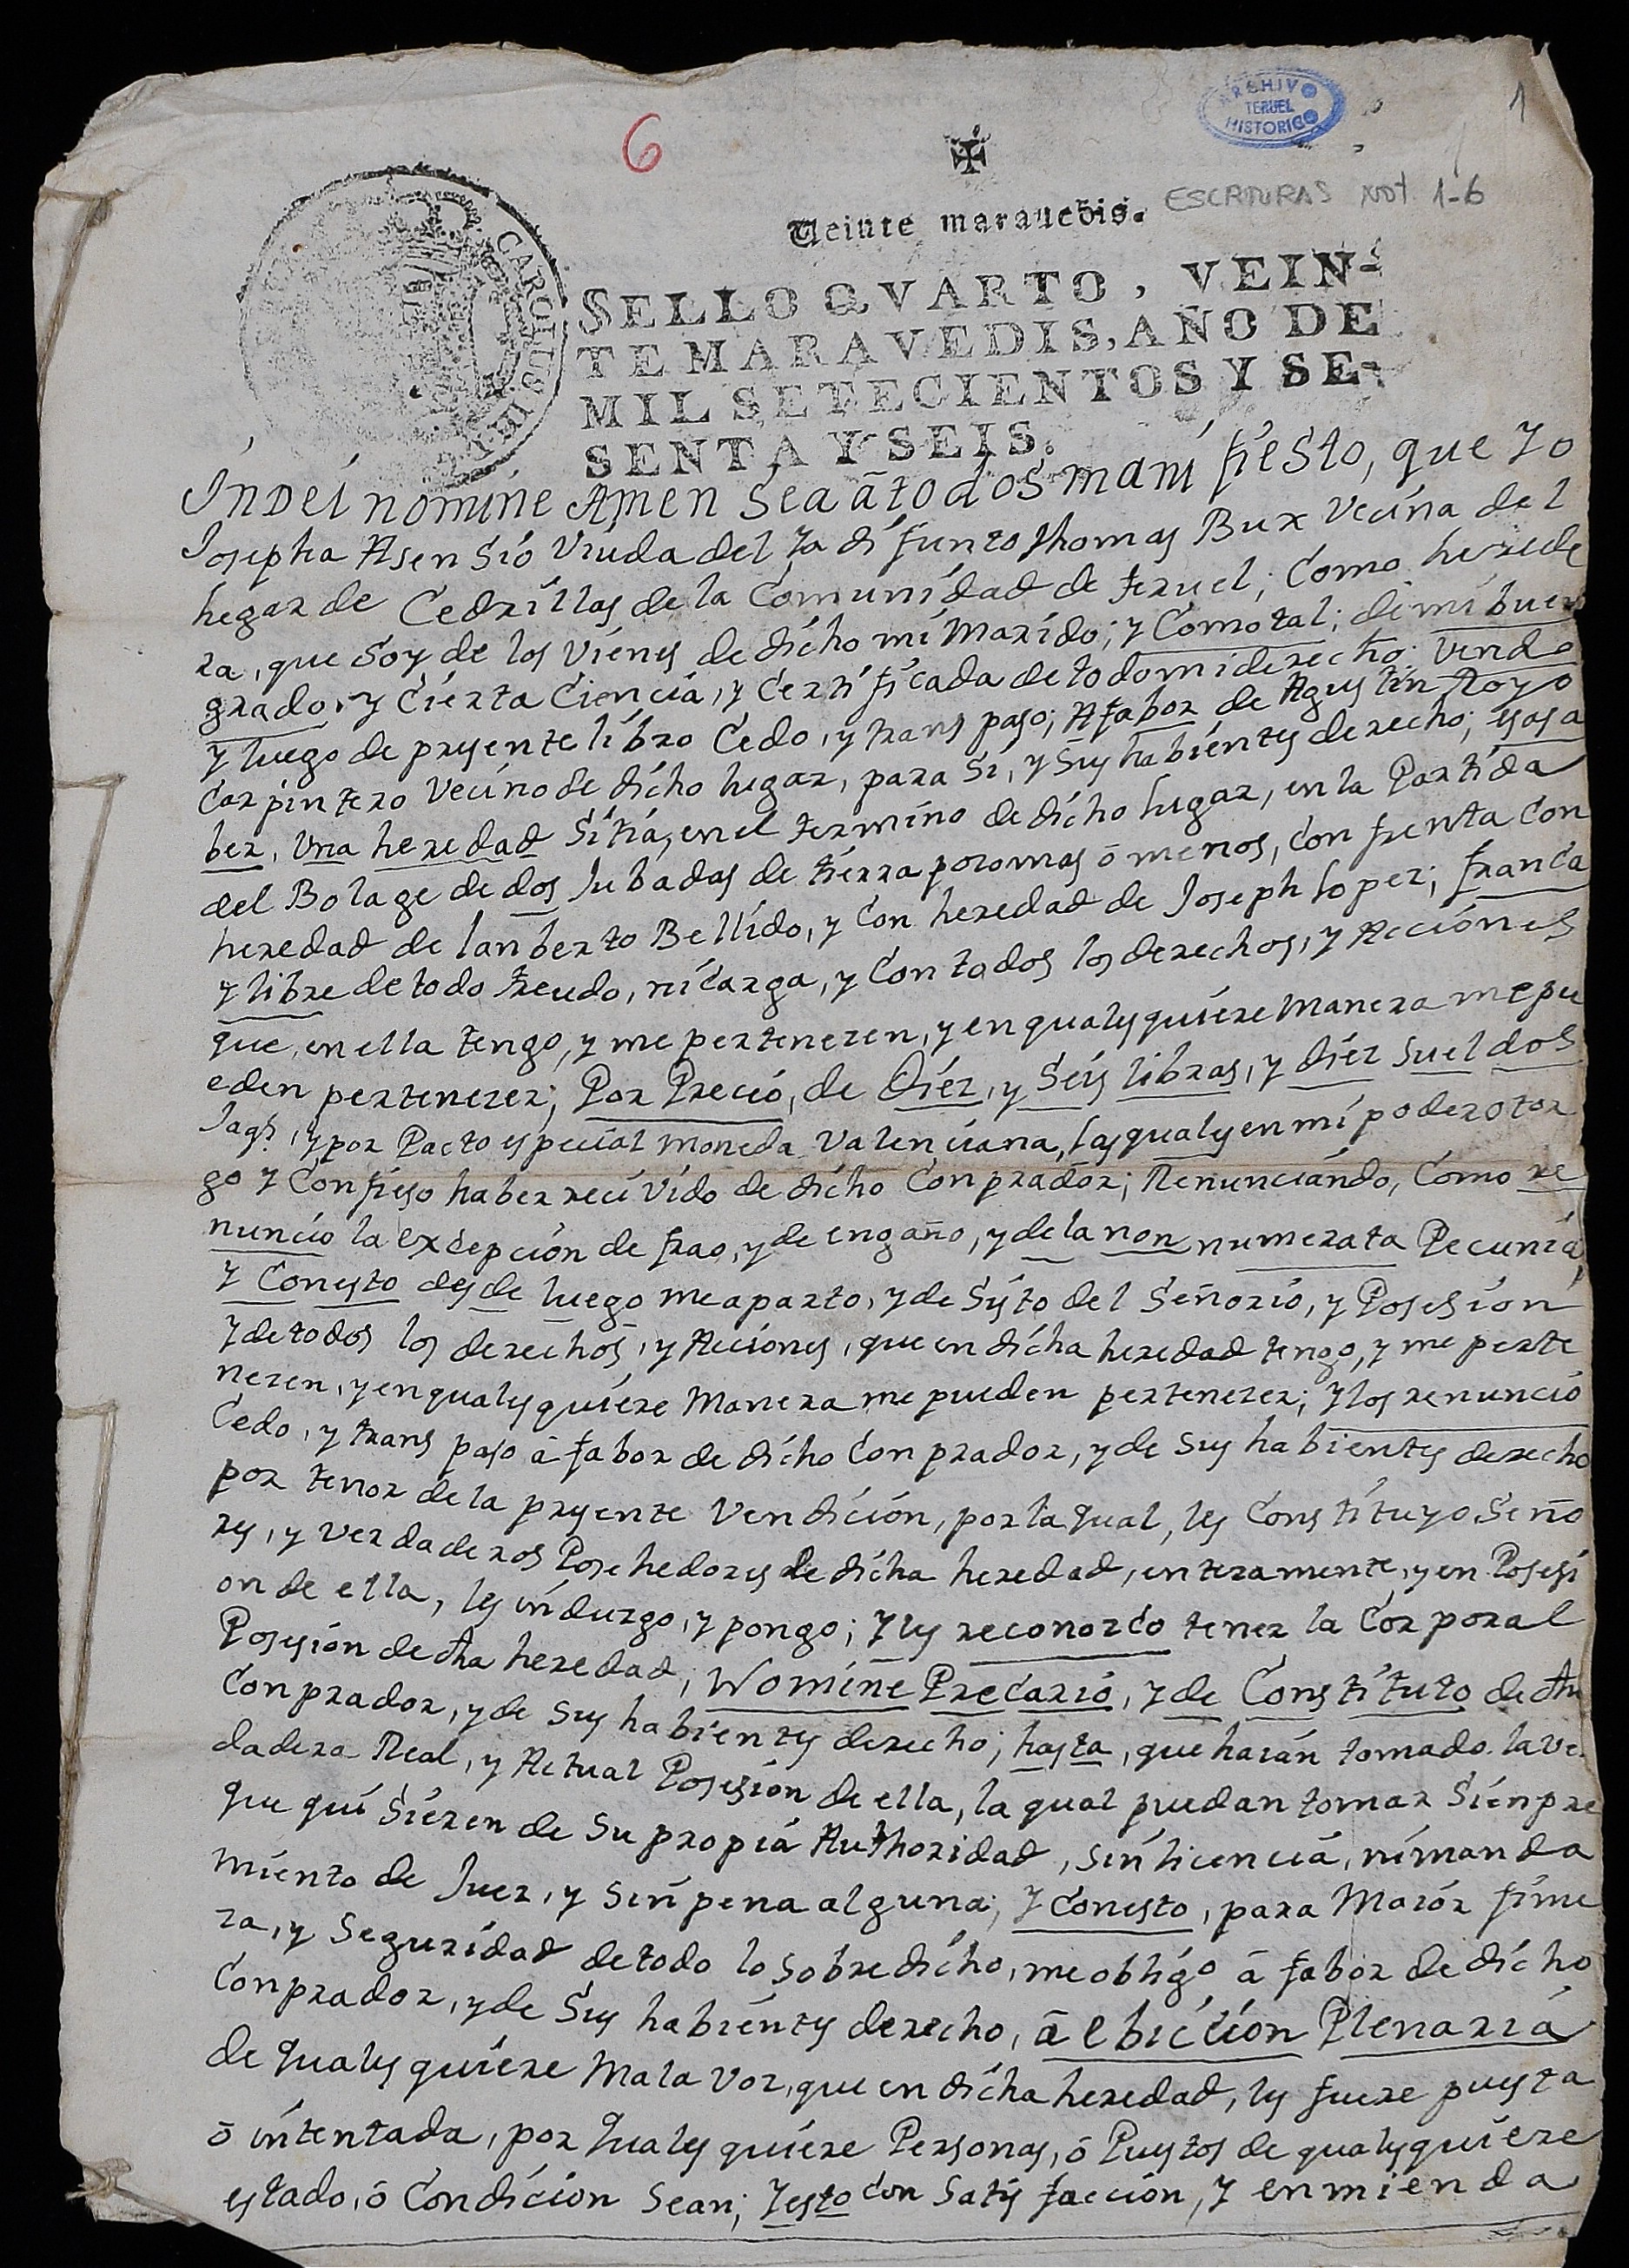 6
ARCHIVO
TERUEL
HISTORICO
1
ESCRITURAS Not 1-6
Veinte marauedis.
CAROLUS III
SELLO QVARTO, VEIN-
TE MARAVEDIS, AÑO DE
MIL SETECIENTOS Y SE-
SENTA Y SEIS.
In Dei nomine Amen Sea ā todos manifiesto, que Yo
Josepha Asensio Viuda del ya difunto Thomas Bux Vecina del
lugar de Cedrillas de la Comunidad de teruel; Como herede
ra, que Soy de los Vienes de dicho mi Marido; y Como tal; de mi buen
grado, y Cierta Ciencia, y Certificada de todo mi derecho; Vendo
y luego de presente libro Cedo, y trans paso; A fabor de Agustin Royo
Carpintero Vecino de dicho lugar, para Si, y Sus habientes derecho; es a sa
ber, Una heredad Sitia, en el termino de dicho lugar, en la Partida
del Bolage de dos Jubadas de tierra poco mas ō menos, Con frenta Con
heredad de lanberto Bellido, y Con heredad de Joseph lopez; franca
y libre de todo treudo, ni carga, y Con todos los derechos, y Acciones
que en ella tengo, y me pertenezen, y en quales quiere Manera me pu
eden pertenezer; Por Precio, de Diez, y Seis libras, y diez Sueldos
Jaqs. y por Pacto especial moneda Valenciana, las quales en mi poder otor
go y Confieso haber recivido de dicho Conprador; Renunciando, Como re
nuncio la excepcion de frao, y de engaño, y de la non numerata Pecunia,
y Con esto des de luego me aparto, y desisto del Señorio, y Posesion
y de todos los derechos, y Acciones, que en dicha heredad tengo, y me perte
nezen, y en quales quiere Manera me pueden pertenezer; y los renuncio
Cedo, y trans paso ā fabor de dicho Conprador, y de Sus habientes derecho
por tenor de la presente Vendicion, por la qual, les Constituyo Seño
res, y verdaderos Posehedores de dicha heredad, enteramente, y en Posesi
on de ella, les induzgo, y pongo; y les reconozco tener la Corporal
Posesion de dha heredad; Nomine Precario, y de Constituto de dho
Conprador, y de Sus habientes derecho; hasta, que haian tomado la ver
dadera Real, y Actual Posesion de ella, la qual puedan tomar Sienpre
que quisieren de Su propia Authoridad, sin licencia, ni manda
miento de Juez, y sin pena alguna; y Con esto, para Maior firme
za, y Seguridad de todo lo sobredicho, me obligo ā fabor de dicho
Conprador, y de Sus habientes derecho, ā ebiccion Plenaria
de quales quiere Mala Voz, que en dicha heredad, les fuere puesta
ō intentada, por quales quiere Personas, ō Puestos de quales quiere
estado, ō Condicion Sean; Y esto con Satisfaccion, y enmienda